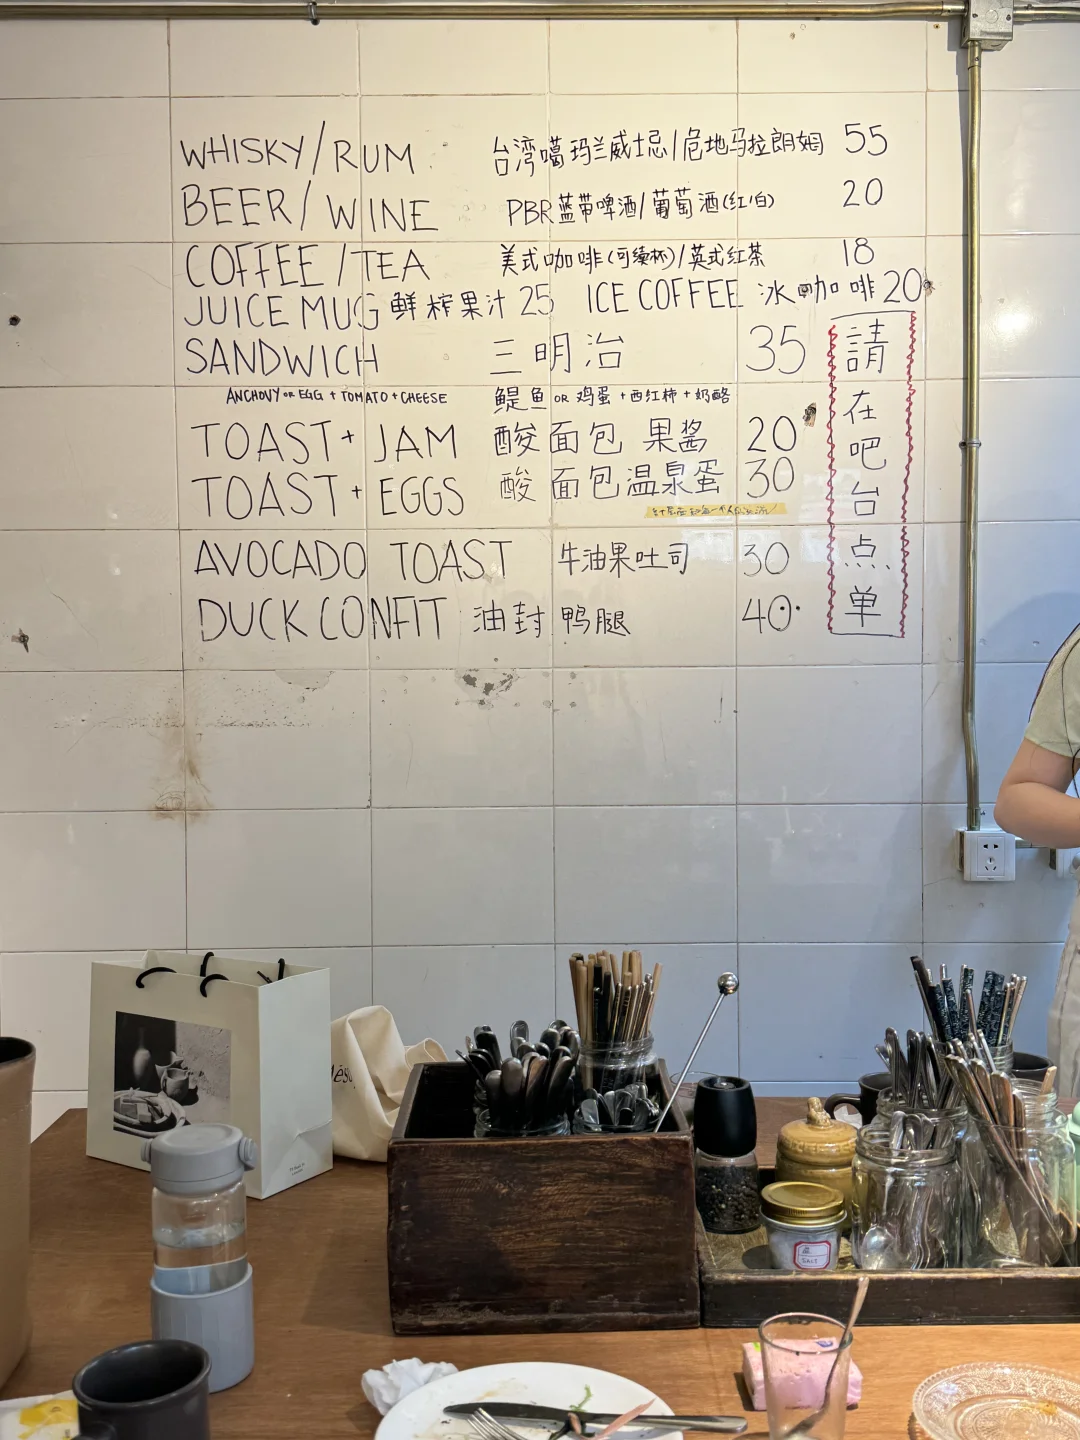 WHISKY/RUM 台湾噶玛兰威士忌/危地马拉朗姆 55
BEER/WINE PBR蓝带啤酒/葡萄酒(红/白) 20
COFFEE/TEA 美式咖啡(可续杯)/英式红茶 18
JUICE MUG 鲜榨果汁 25 ICE COFFEE 冰咖啡 20
SANDWICH 三明治 35
ANCHOVY OR EGG + TOMATO + CHEESE 鳀鱼 OR 鸡蛋 + 西红柿 + 奶酪
TOAST + JAM 酸面包 果酱 20
TOAST + EGGS 酸面包温泉蛋 30
AVOCADO TOAST 牛油果吐司 30
DUCK CONFIT 油封鸭腿 40
請在吧台点单
SALT